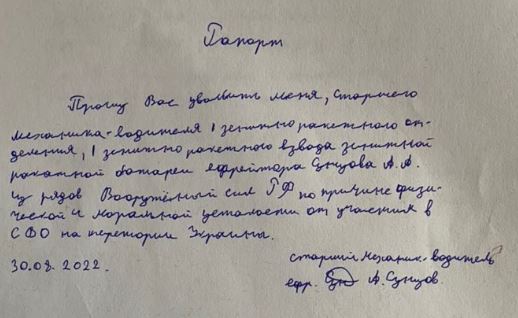 Рапорт
Прошу Вас уволить меня, старшего
механика-водителя 1 зенитно ракетного от-
деления, 1 зенитно ракетного взвода зенитной
ракетной батареи ефрейтора Сунцова А.А.
из рядов Вооружёный сил РФ по причине физи-
ческой и моральной усталости от участия в
СВО на територии Украины.
старший механик-водитель
30.08.2022.
ефр. А.Сунцов.